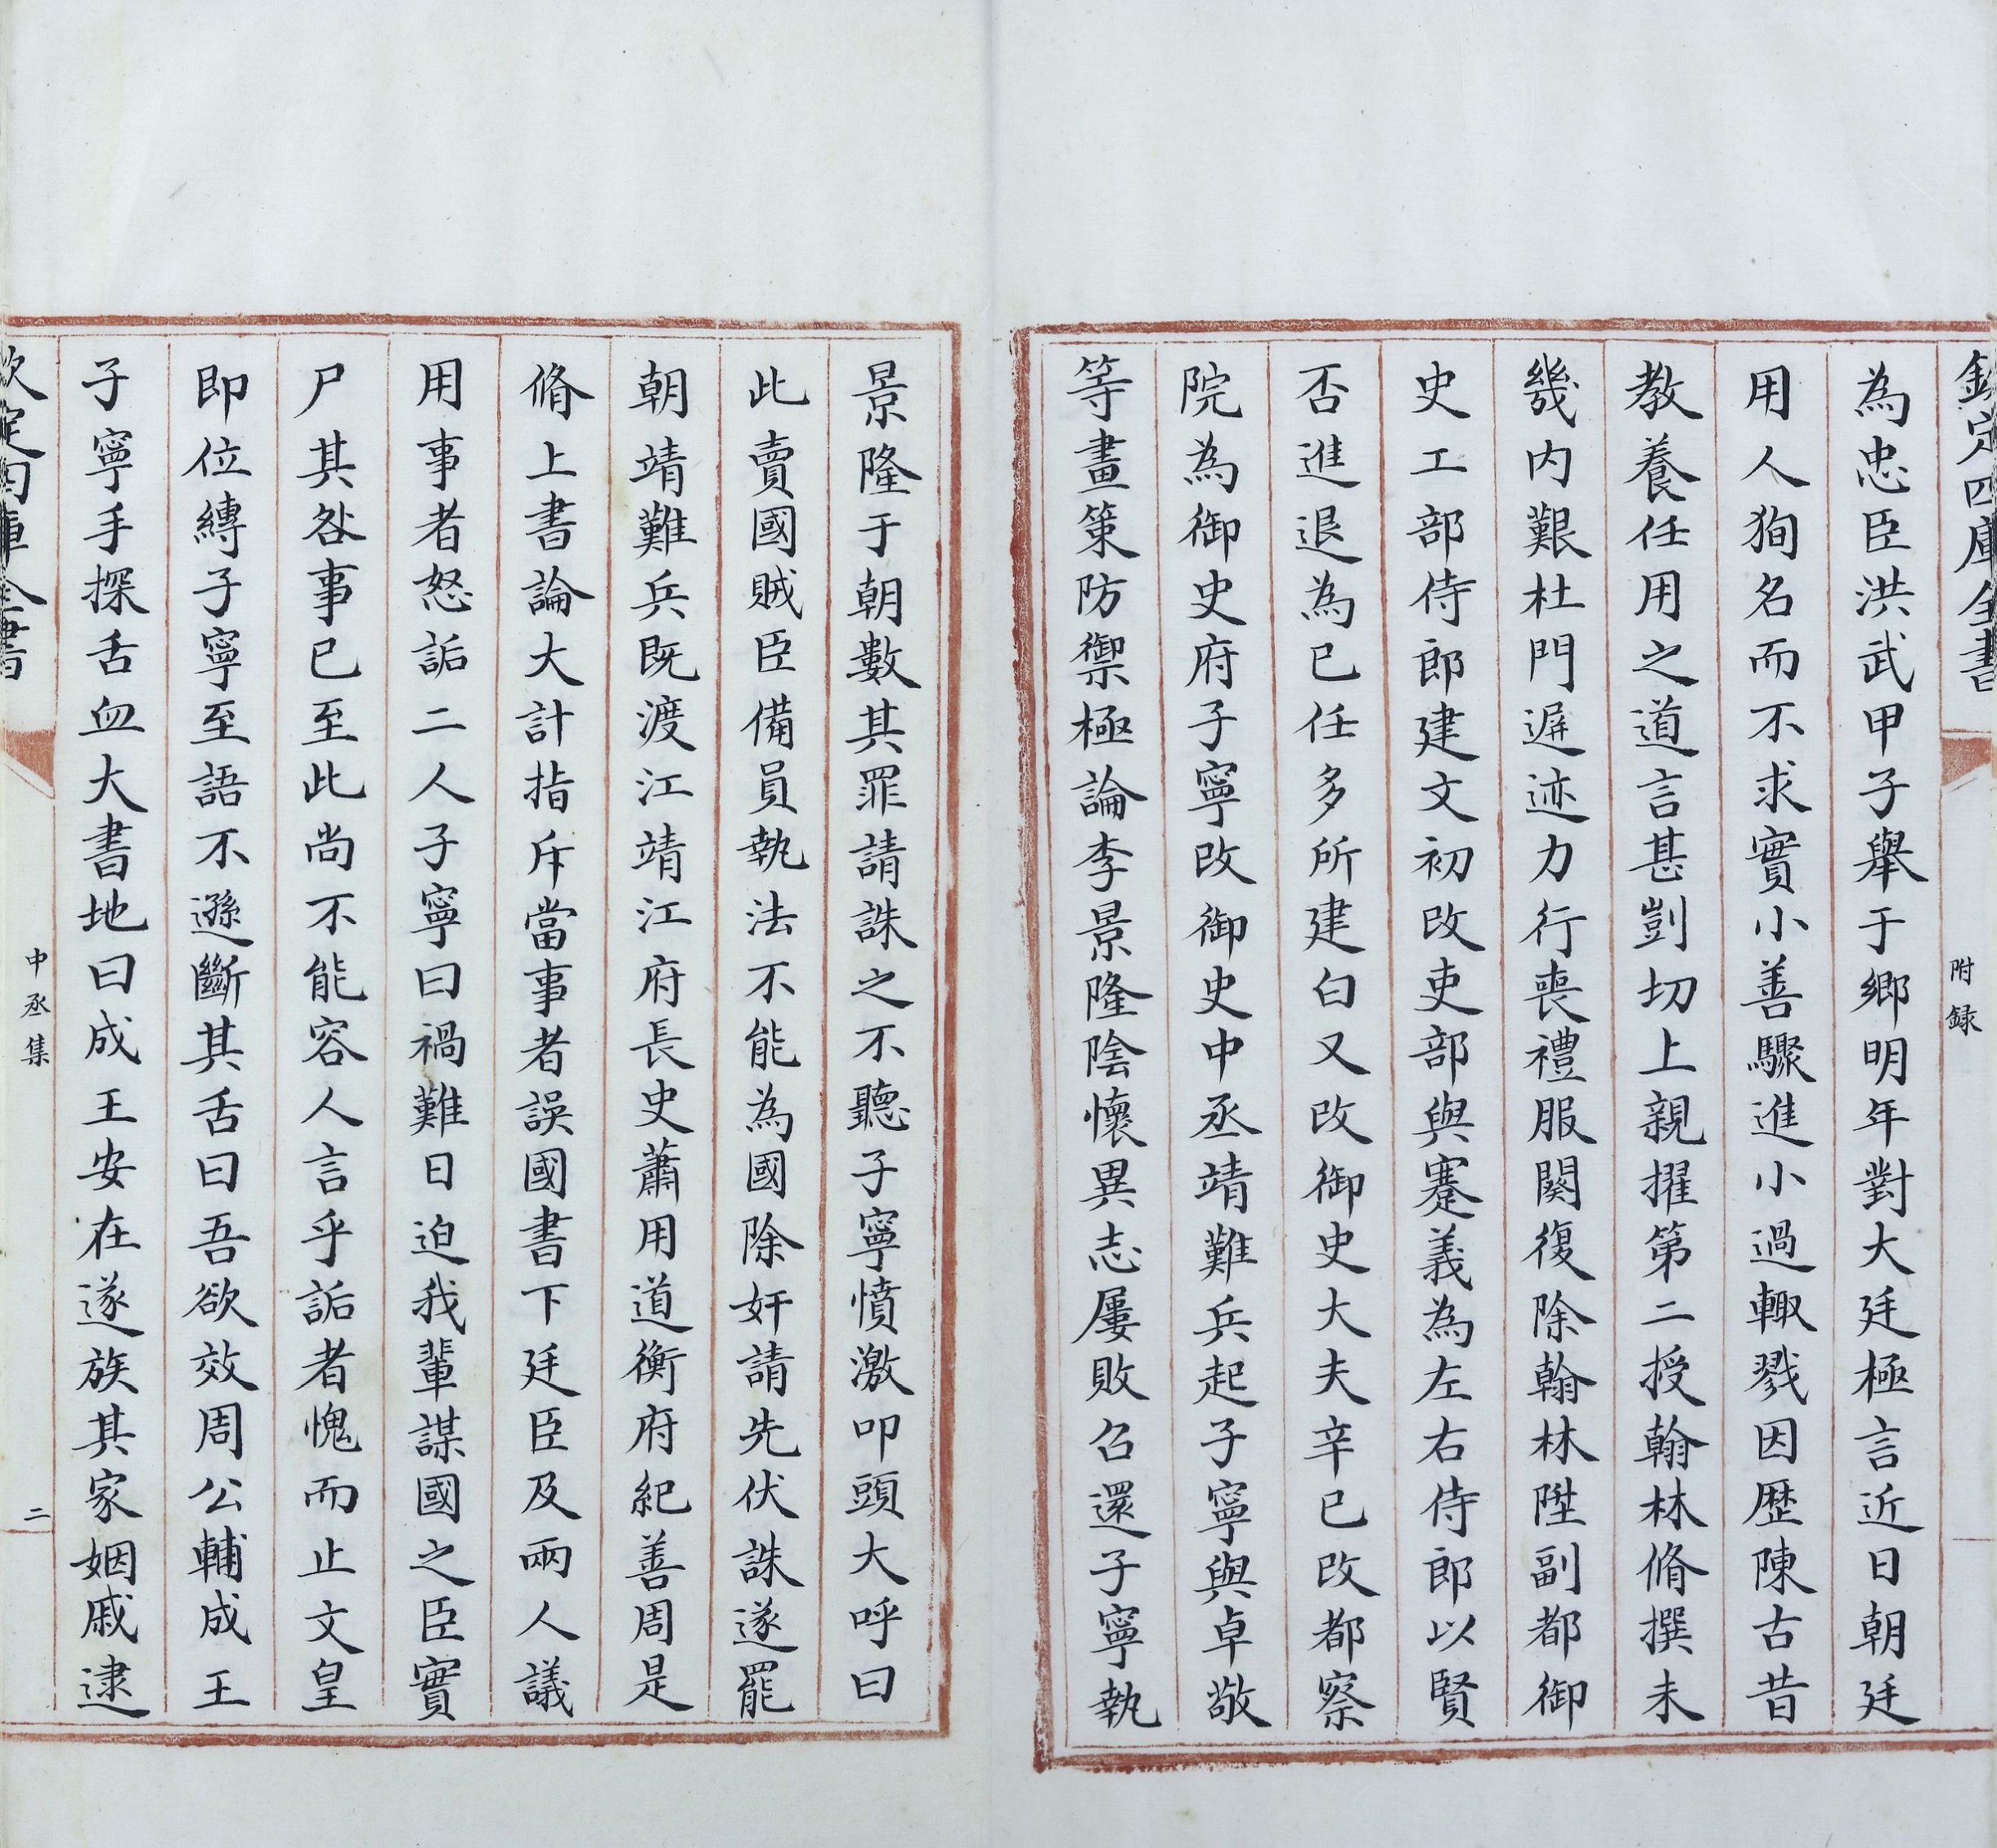 欽定四庫全書
附録
為忠臣洪武甲子舉于鄉明年對大廷極言近日朝廷
用人狥名而不求實小善驟進小過輙戮因歴陳古昔
教養任用之道言甚剴切上親擢第二授翰林脩撰未
幾内艱杜門遲迹力行喪禮服闋復除翰林陞副都御
史工部侍郎建文初改吏部與蹇義為左右侍郎以賢
否進退為已任多所建白又改御史大夫辛巳改都察
院為御史府子寧改御史中丞靖難兵起子寧與卓敬
等畫策防禦極論李景隆陰懷異志屢敗召還子寧執
景隆于朝數其罪請誅之不聽子寧憤激叩頭大呼曰
此賣國賊臣備員執法不能為國除奸請先伏誅遂罷
朝靖難兵既渡江靖江府長史蕭用道衡府紀善周是
脩上書論大計指斥當事者誤國書下廷臣及兩人議
用事者怒詬二人子寧曰禍難日迫我輩謀國之臣實
尸其咎事已至此尚不能容人言乎詬者愧而止文皇
即位縛子寧至語不遜斷其舌曰吾欲效周公輔成王
子寧手探舌血大書地曰成王安在遂族其家姻戚逮
欽定四庫全書
中丞集
二